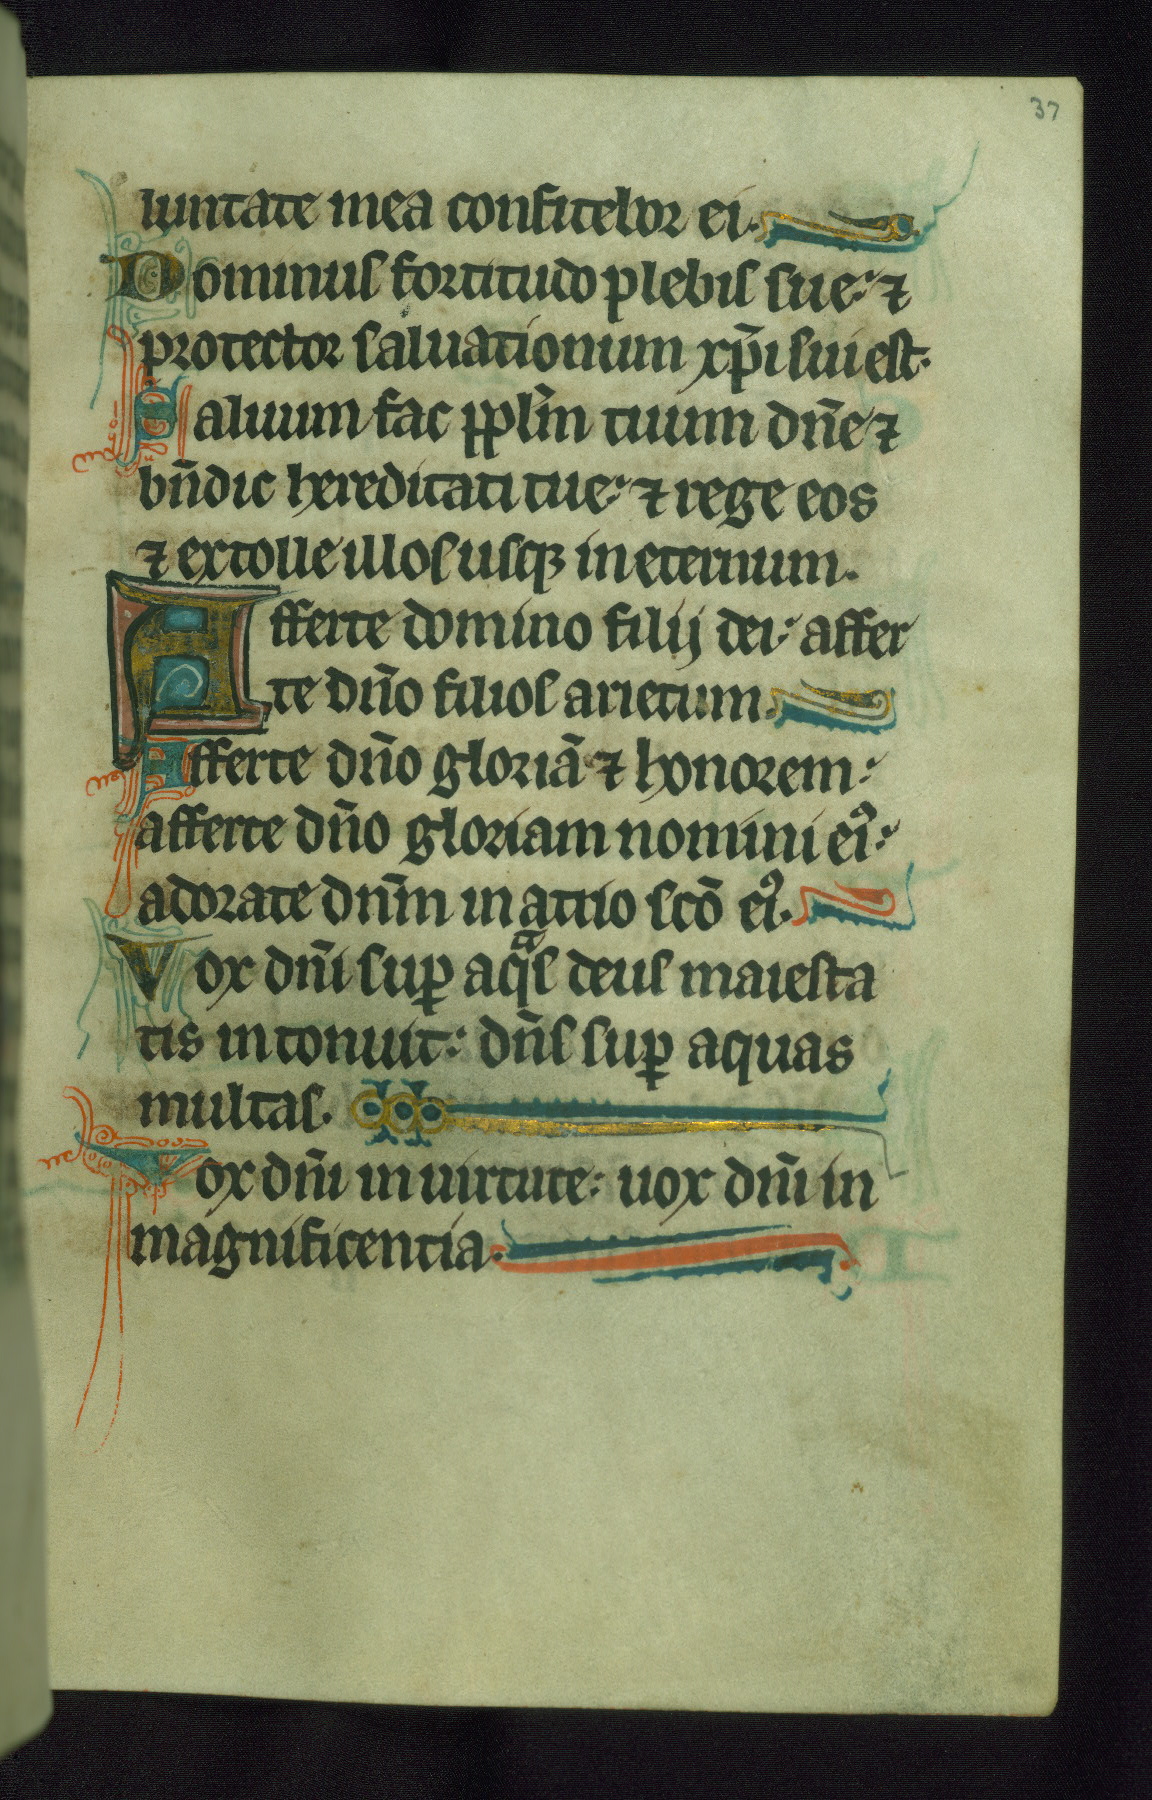 37
luntate mea confitebor ei.
Dominus fortitudo plebis sue: ⁊
protector saluationum xp̄i sui est.
Saluum fac pplm̄ tuum dn̄e ⁊
bn̄dic hereditati tue: ⁊ rege eos
⁊ extolle illos usqꝫ in eternum.
Afferte domino filij dei: affer
te dn̄o filios arietum.
Afferte dn̄o gloriā ⁊ honorem:
afferte dn̄o gloriam nomini eiꝰ:
adorate dn̄m in atrio scō eiꝰ.
Vox dn̄i suꝑ aqᵃs deus maiesta
tis intonuit: dn̄s suꝑ aquas
multas.
Vox dn̄i in uirtute: uox dn̄i in
magnificentia.